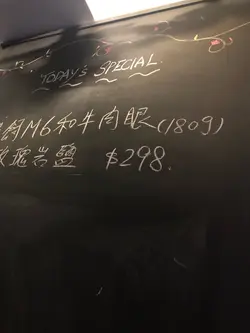 TODAY'S SPECIAL
M6和牛肉眼(180g)
瑰岩鹽 $298.